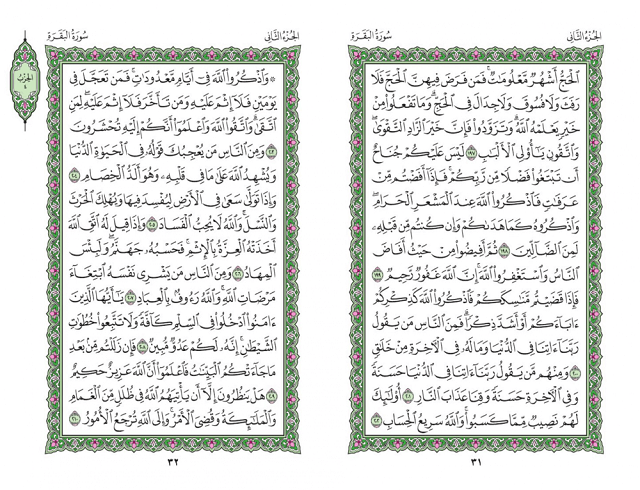 سُورَةُ البَقَرَة
الجُزْءُ الثَّانِي
ٱلْحَجُّ أَشْهُرٌ مَّعْلُومَٰتٌ ۚ فَمَن فَرَضَ فِيهِنَّ ٱلْحَجَّ فَلَا
رَفَثَ وَلَا فُسُوقَ وَلَا جِدَالَ فِي ٱلْحَجِّ ۗ وَمَا تَفْعَلُوا۟ مِنْ
خَيْرٍ يَعْلَمْهُ ٱللَّهُ ۗ وَتَزَوَّدُوا۟ فَإِنَّ خَيْرَ ٱلزَّادِ ٱلتَّقْوَىٰ ۚ
وَٱتَّقُونِ يَٰٓأُو۟لِي ٱلْأَلْبَٰبِ ١٩٧ لَيْسَ عَلَيْكُمْ جُنَاحٌ
أَن تَبْتَغُوا۟ فَضْلًا مِّن رَّبِّكُمْ ۚ فَإِذَآ أَفَضْتُم مِّنْ
عَرَفَٰتٍ فَٱذْكُرُوا۟ ٱللَّهَ عِندَ ٱلْمَشْعَرِ ٱلْحَرَامِ ۖ
وَٱذْكُرُوهُ كَمَا هَدَىٰكُمْ وَإِن كُنتُم مِّن قَبْلِهِۦ
لَمِنَ ٱلضَّآلِّينَ ١٩٨ ثُمَّ أَفِيضُوا۟ مِنْ حَيْثُ أَفَاضَ
ٱلنَّاسُ وَٱسْتَغْفِرُوا۟ ٱللَّهَ ۚ إِنَّ ٱللَّهَ غَفُورٌ رَّحِيمٌ ١٩٩
فَإِذَا قَضَيْتُم مَّنَٰسِكَكُمْ فَٱذْكُرُوا۟ ٱللَّهَ كَذِكْرِكُمْ
ءَابَآءَكُمْ أَوْ أَشَدَّ ذِكْرًا ۗ فَمِنَ ٱلنَّاسِ مَن يَقُولُ
رَبَّنَآ ءَاتِنَا فِي ٱلدُّنْيَا وَمَا لَهُۥ فِي ٱلْءَاخِرَةِ مِنْ خَلَٰقٍ
٢٠٠ وَمِنْهُم مَّن يَقُولُ رَبَّنَآ ءَاتِنَا فِي ٱلدُّنْيَا حَسَنَةً
وَفِي ٱلْءَاخِرَةِ حَسَنَةً وَقِنَا عَذَابَ ٱلنَّارِ ٢٠١ أُو۟لَٰٓئِكَ
لَهُمْ نَصِيبٌ مِّمَّا كَسَبُوا۟ ۚ وَٱللَّهُ سَرِيعُ ٱلْحِسَابِ ٢٠٢
٣١
سُورَةُ البَقَرَة
الجُزْءُ الثَّانِي
الحِزْب
٤
۞ وَٱذْكُرُوا۟ ٱللَّهَ فِيٓ أَيَّامٍ مَّعْدُودَٰتٍ ۚ فَمَن تَعَجَّلَ فِي
يَوْمَيْنِ فَلَآ إِثْمَ عَلَيْهِ وَمَن تَأَخَّرَ فَلَآ إِثْمَ عَلَيْهِ ۚ لِمَنِ
ٱتَّقَىٰ ۗ وَٱتَّقُوا۟ ٱللَّهَ وَٱعْلَمُوٓا۟ أَنَّكُمْ إِلَيْهِ تُحْشَرُونَ
٢٠٣ وَمِنَ ٱلنَّاسِ مَن يُعْجِبُكَ قَوْلُهُۥ فِي ٱلْحَيَوٰةِ ٱلدُّنْيَا
وَيُشْهِدُ ٱللَّهَ عَلَىٰ مَا فِي قَلْبِهِۦ وَهُوَ أَلَدُّ ٱلْخِصَامِ ٢٠٤
وَإِذَا تَوَلَّىٰ سَعَىٰ فِي ٱلْأَرْضِ لِيُفْسِدَ فِيهَا وَيُهْلِكَ ٱلْحَرْثَ
وَٱلنَّسْلَ ۗ وَٱللَّهُ لَا يُحِبُّ ٱلْفَسَادَ ٢٠٥ وَإِذَا قِيلَ لَهُ ٱتَّقِ ٱللَّهَ
أَخَذَتْهُ ٱلْعِزَّةُ بِٱلْإِثْمِ ۚ فَحَسْبُهُۥ جَهَنَّمُ ۚ وَلَبِئْسَ
ٱلْمِهَادُ ٢٠٦ وَمِنَ ٱلنَّاسِ مَن يَشْرِي نَفْسَهُ ٱبْتِغَآءَ
مَرْضَاتِ ٱللَّهِ ۗ وَٱللَّهُ رَءُوفٌۢ بِٱلْعِبَادِ ٢٠٧ يَٰٓأَيُّهَا ٱلَّذِينَ
ءَامَنُوا۟ ٱدْخُلُوا۟ فِي ٱلسِّلْمِ كَآفَّةً وَلَا تَتَّبِعُوا۟ خُطُوَٰتِ
ٱلشَّيْطَٰنِ ۚ إِنَّهُۥ لَكُمْ عَدُوٌّ مُّبِينٌ ٢٠٨ فَإِن زَلَلْتُم مِّنۢ بَعْدِ
مَا جَآءَتْكُمُ ٱلْبَيِّنَٰتُ فَٱعْلَمُوٓا۟ أَنَّ ٱللَّهَ عَزِيزٌ حَكِيمٌ
٢٠٩ هَلْ يَنظُرُونَ إِلَّآ أَن يَأْتِيَهُمُ ٱللَّهُ فِي ظُلَلٍ مِّنَ ٱلْغَمَامِ
وَٱلْمَلَٰٓئِكَةُ وَقُضِيَ ٱلْأَمْرُ ۚ وَإِلَى ٱللَّهِ تُرْجَعُ ٱلْأُمُورُ ٢١٠
٣٢